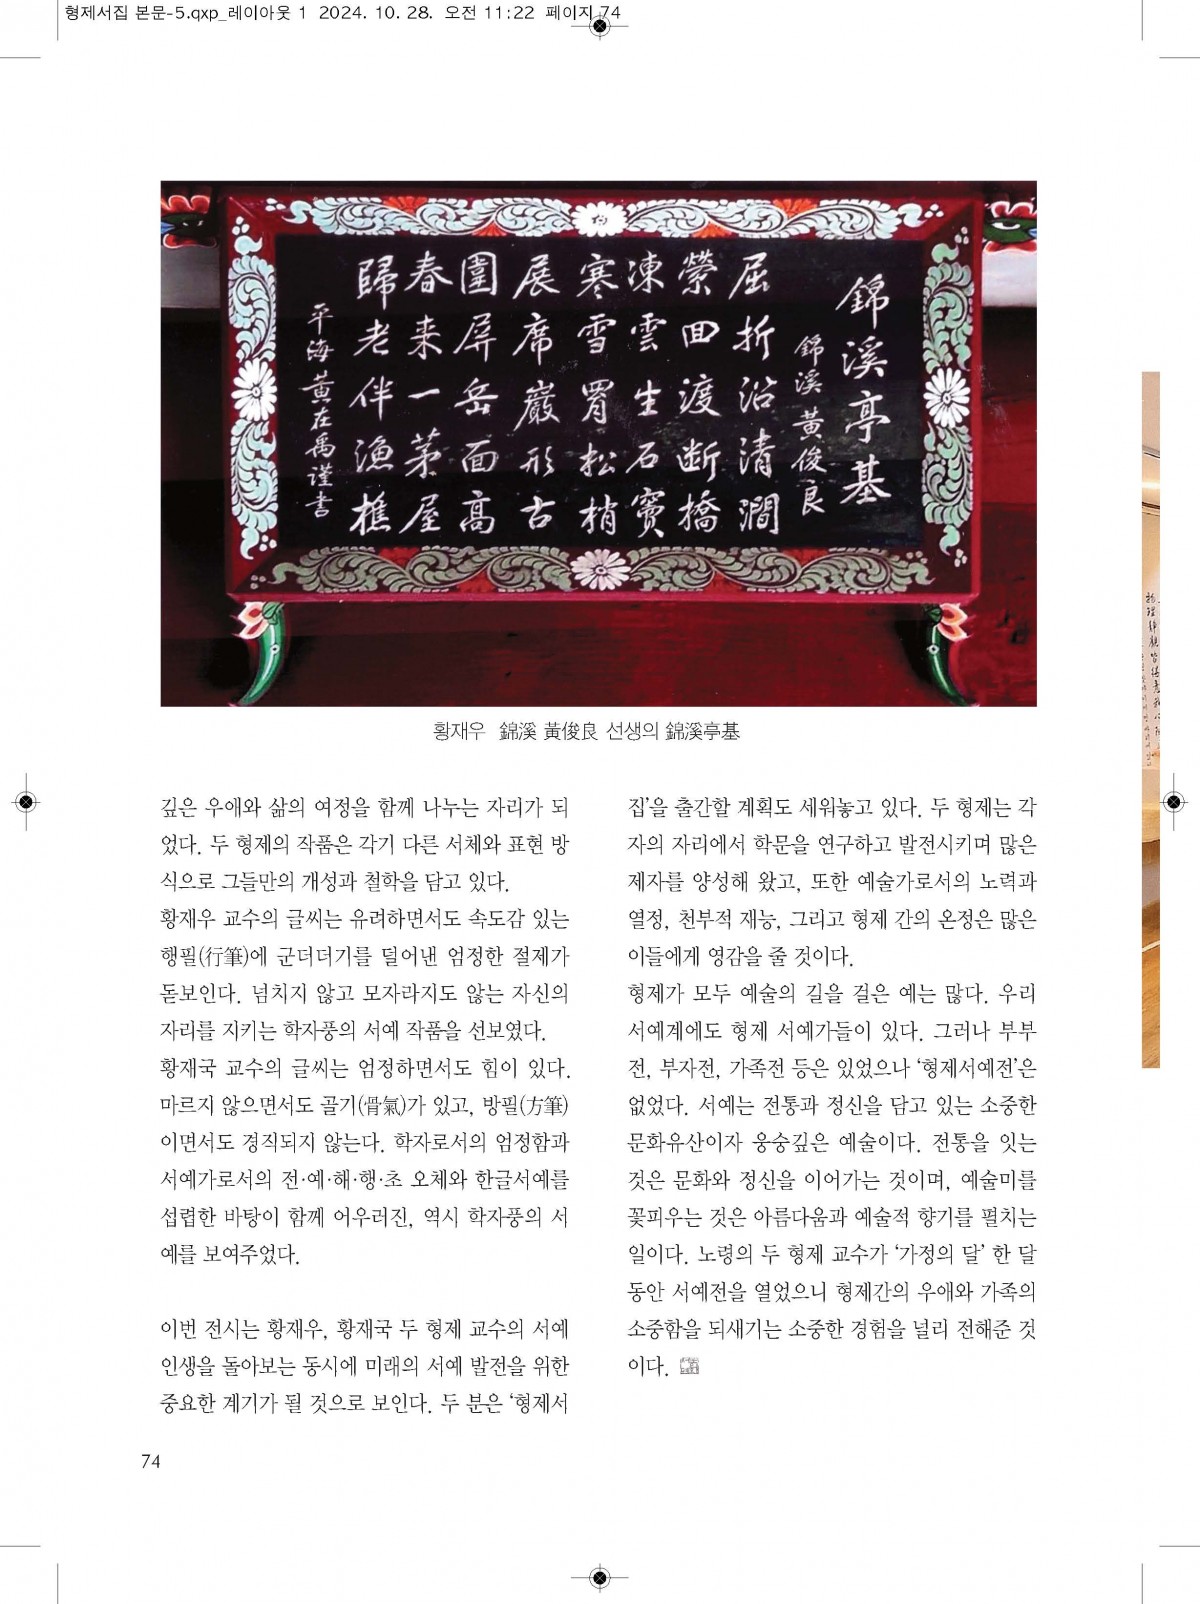 형제서집 본문-5.qxp_레이아웃 1 2024. 10. 28. 오전 11:22 페이지 74
錦溪亭基
錦溪 黃俊良
屈折沿清澗
縈回渡断橋
凍雲生石竇
寒雪罥松梢
展席巖形古
圍屏岳面高
春来一茅屋
歸老伴漁樵
平海黃在禹謹書
황재우 錦溪 黃俊良 선생의 錦溪亭基
깊은 우애와 삶의 여정을 함께 나누는 자리가 되
었다. 두 형제의 작품은 각기 다른 서체와 표현 방
식으로 그들만의 개성과 철학을 담고 있다.
황재우 교수의 글씨는 유려하면서도 속도감 있는
행필(行筆)에 군더더기를 덜어낸 엄정한 절제가
돋보인다. 넘치지 않고 모자라지도 않는 자신의
자리를 지키는 학자풍의 서예 작품을 선보였다.
황재국 교수의 글씨는 엄정하면서도 힘이 있다.
마르지 않으면서도 골기(骨氣)가 있고, 방필(方筆)
이면서도 경직되지 않는다. 학자로서의 엄정함과
서예가로서의 전·예·해·행·초 오체와 한글서예를
섭렵한 바탕이 함께 어우러진, 역시 학자풍의 서
예를 보여주었다.
이번 전시는 황재우, 황재국 두 형제 교수의 서예
인생을 돌아보는 동시에 미래의 서예 발전을 위한
중요한 계기가 될 것으로 보인다. 두 분은 ‘형제서
집’을 출간할 계획도 세워놓고 있다. 두 형제는 각
자의 자리에서 학문을 연구하고 발전시키며 많은
제자를 양성해 왔고, 또한 예술가로서의 노력과
열정, 천부적 재능, 그리고 형제 간의 온정은 많은
이들에게 영감을 줄 것이다.
형제가 모두 예술의 길을 걸은 예는 많다. 우리
서예계에도 형제 서예가들이 있다. 그러나 부부
전, 부자전, 가족전 등은 있었으나 ‘형제서예전’은
없었다. 서예는 전통과 정신을 담고 있는 소중한
문화유산이자 웅숭깊은 예술이다. 전통을 잇는
것은 문화와 정신을 이어가는 것이며, 예술미를
꽃피우는 것은 아름다움과 예술적 향기를 펼치는
일이다. 노령의 두 형제 교수가 ‘가정의 달’ 한 달
동안 서예전을 열었으니 형제간의 우애와 가족의
소중함을 되새기는 소중한 경험을 널리 전해준 것
이다.
74